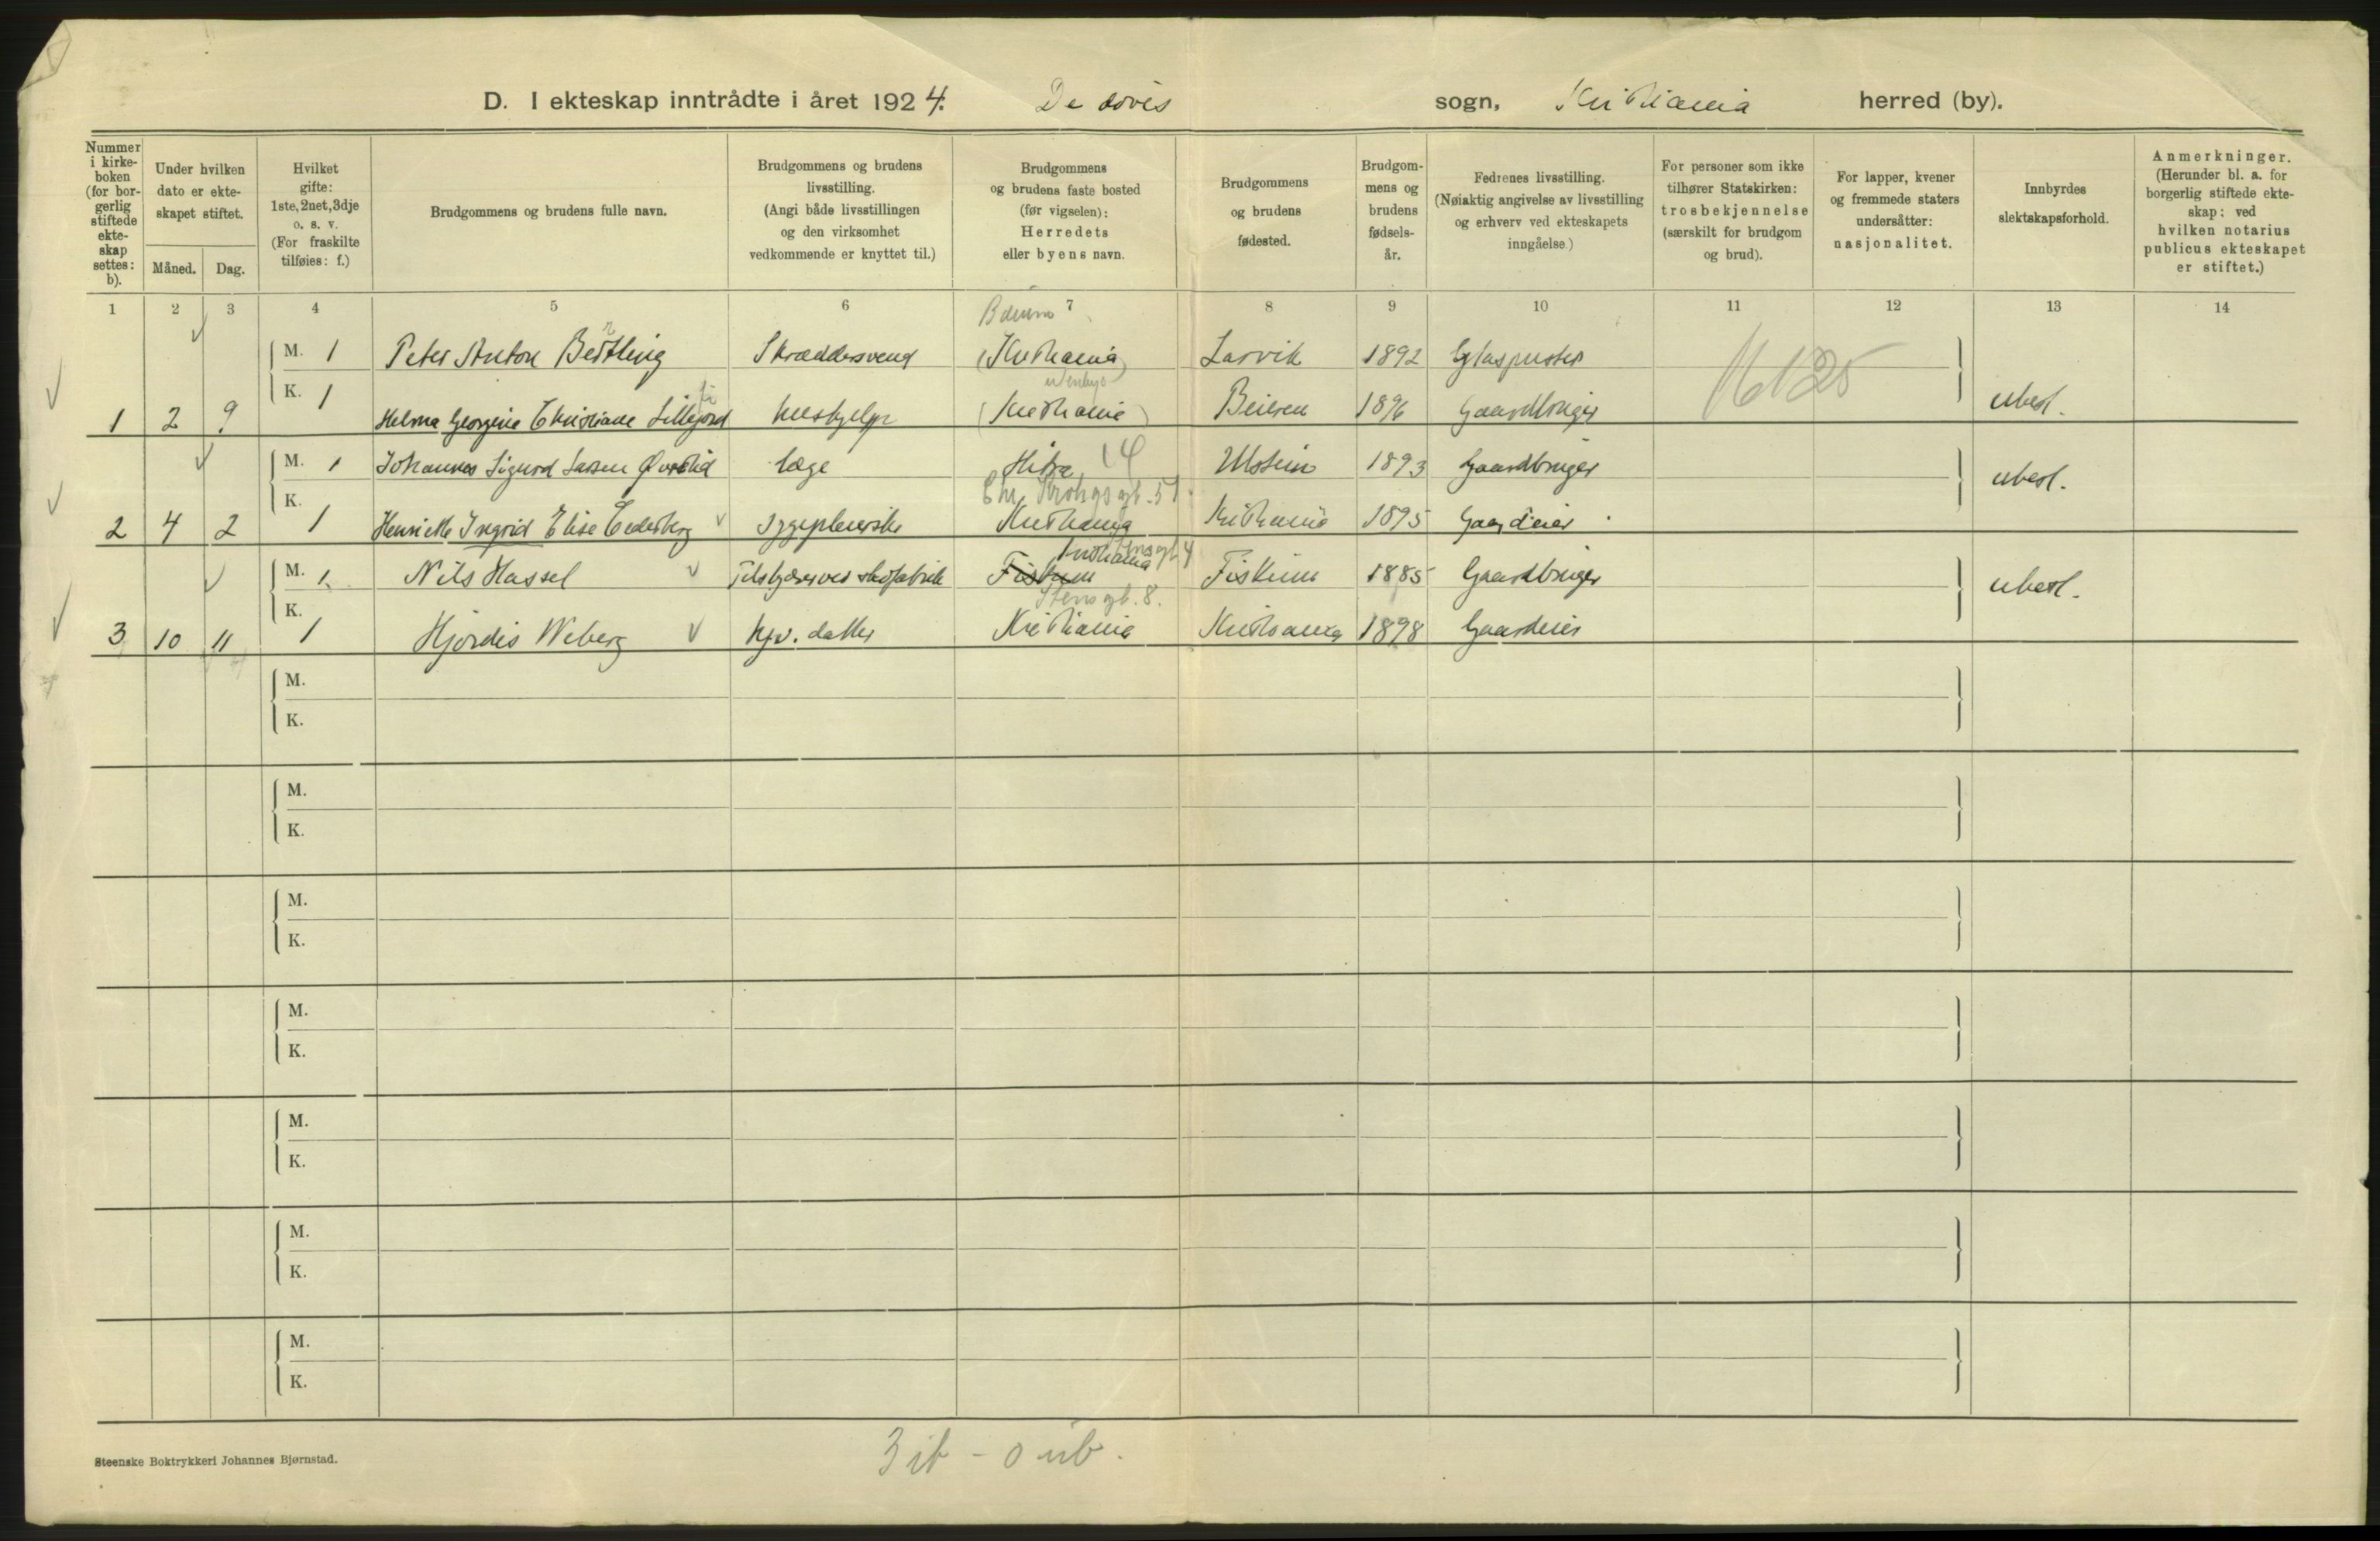 D. I ekteskap inntrådte i året 1924. De døves sogn, Kristiania herred (by).
Nummer i kirkeboken (for borgerlig stiftede ekteskap settes: b).
Under hvilken dato er ekteskapet stiftet.
Måned. Dag.
Hvilket gifte: 1ste, 2net, 3dje o. s. v. (For fraskilte tilføies: f.)
Brudgommens og brudens fulle navn.
Brudgommens og brudens livsstilling. (Angi både livsstillingen og den virksomhet vedkommende er knyttet til.)
Brudgommens og brudens faste bosted (før vigselen): Herredets eller byens navn.
Brudgommens og brudens fødested.
Brudgommens og brudens fødselsår.
Fedrenes livsstilling. (Nøiaktig angivelse av livsstilling og erhverv ved ekteskapets inngåelse.)
For personer som ikke tilhører Statskirken: trosbekjennelse (særskilt for brudgom og brud).
For lapper, kvener og fremmede staters undersåtter: nasjonalitet.
Innbyrdes slektskapsforhold.
Anmerkninger. (Herunder bl. a. for borgerlig stiftede ekteskap: ved hvilken notarius publicus ekteskapet er stiftet.)
1 2 3 4 5 6 7 8 9 10 11 12 13 14
Bærum
M. 1 Peter Anton Bertling Skræddersvend (Kristiania) Larvik 1892 Glaspuster
1 2 9 K. 1 Helma Georgine Christiane Lillefjord hushjelp (Kristiania) Beieren 1896 Gaardbruger ubesl.
M. 1 Johannes Sigurd Larsen Øvrelid læge Hitra 14 Ulstein 1893 Gaardbruger ubesl.
Chr. Krohgs gt. 51.
2 4 2 K. 1 Henriette Ingrid Elise Cederberg sygepleierske Kristiania Kristiania 1895 Gaardeier
Kristiania
M. 1. Nils Hassel Tilskjærer ved skofabrik Fiskum Fiskum 1885 Gaardbruger ubesl.
Stensgt. 8.
3 10 11 K. 1 Hjørdis Weberg hjv. datter Kristiania Kristiania 1898 Gaardeier
M.
K.
M.
K.
M.
K.
M.
K.
M.
K.
M.
K.
M.
K.
Steenske Boktrykkeri Johannes Bjørnstad.
3 ib - 0 ub.